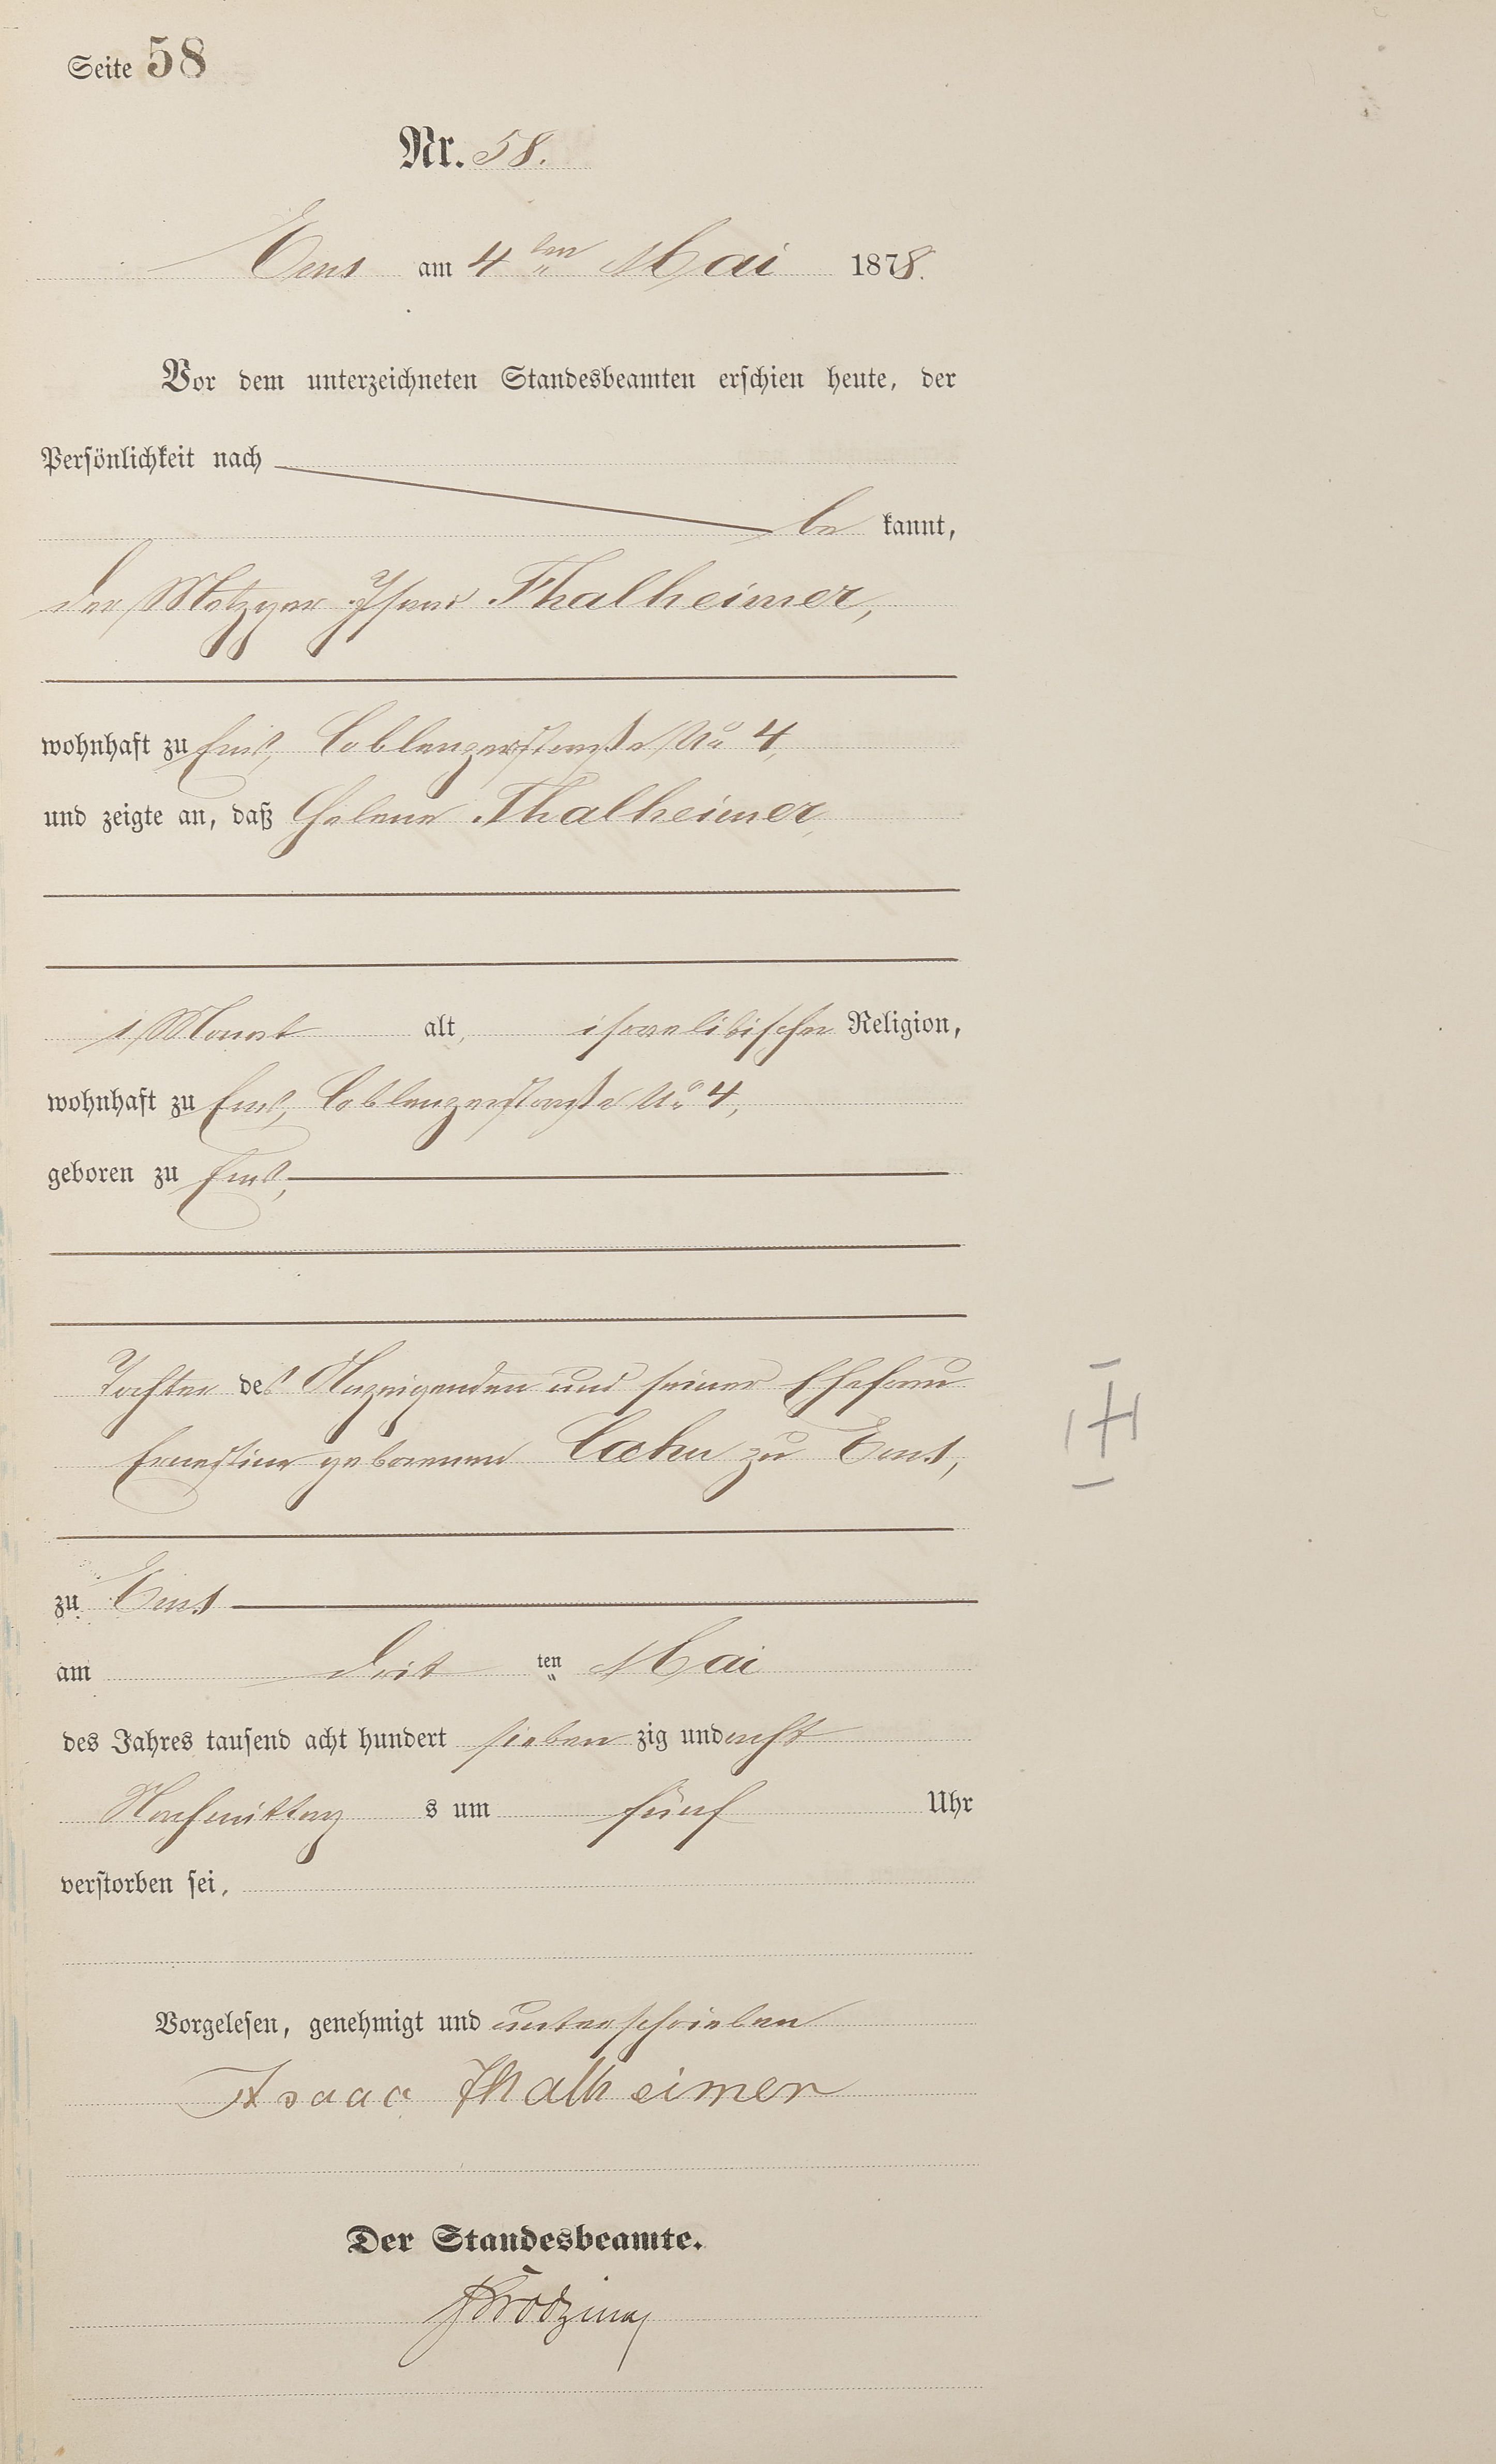 Seite 58
Nr. 58.
Ems am 4ten Mai 1878.
Vor dem unterzeichneten Standesbeamten erschien heute, der
Persönlichkeit nach
be kannt,
der Metzger Isaac Thalheimer,
wohnhaft zu Ems, Coblenzerstraße No 4,
und zeigte an, daß Helene Thalheimer,
1 Monat alt, israelitischer Religion,
wohnhaft zu Ems, Coblenzerstraße No 4,
geboren zu Ems,
Tochter des Anzeigenden und seiner Ehefrau
Ernestine geborenen Cahn zu Ems,
zu Ems
am dritten Mai
des Jahres tausend acht hundert sieben zig und acht
Nachmittag s um fünf Uhr
verstorben sei.
Vorgelesen, genehmigt und unterschrieben
Isaac Thalheimer
Der Standesbeamte.